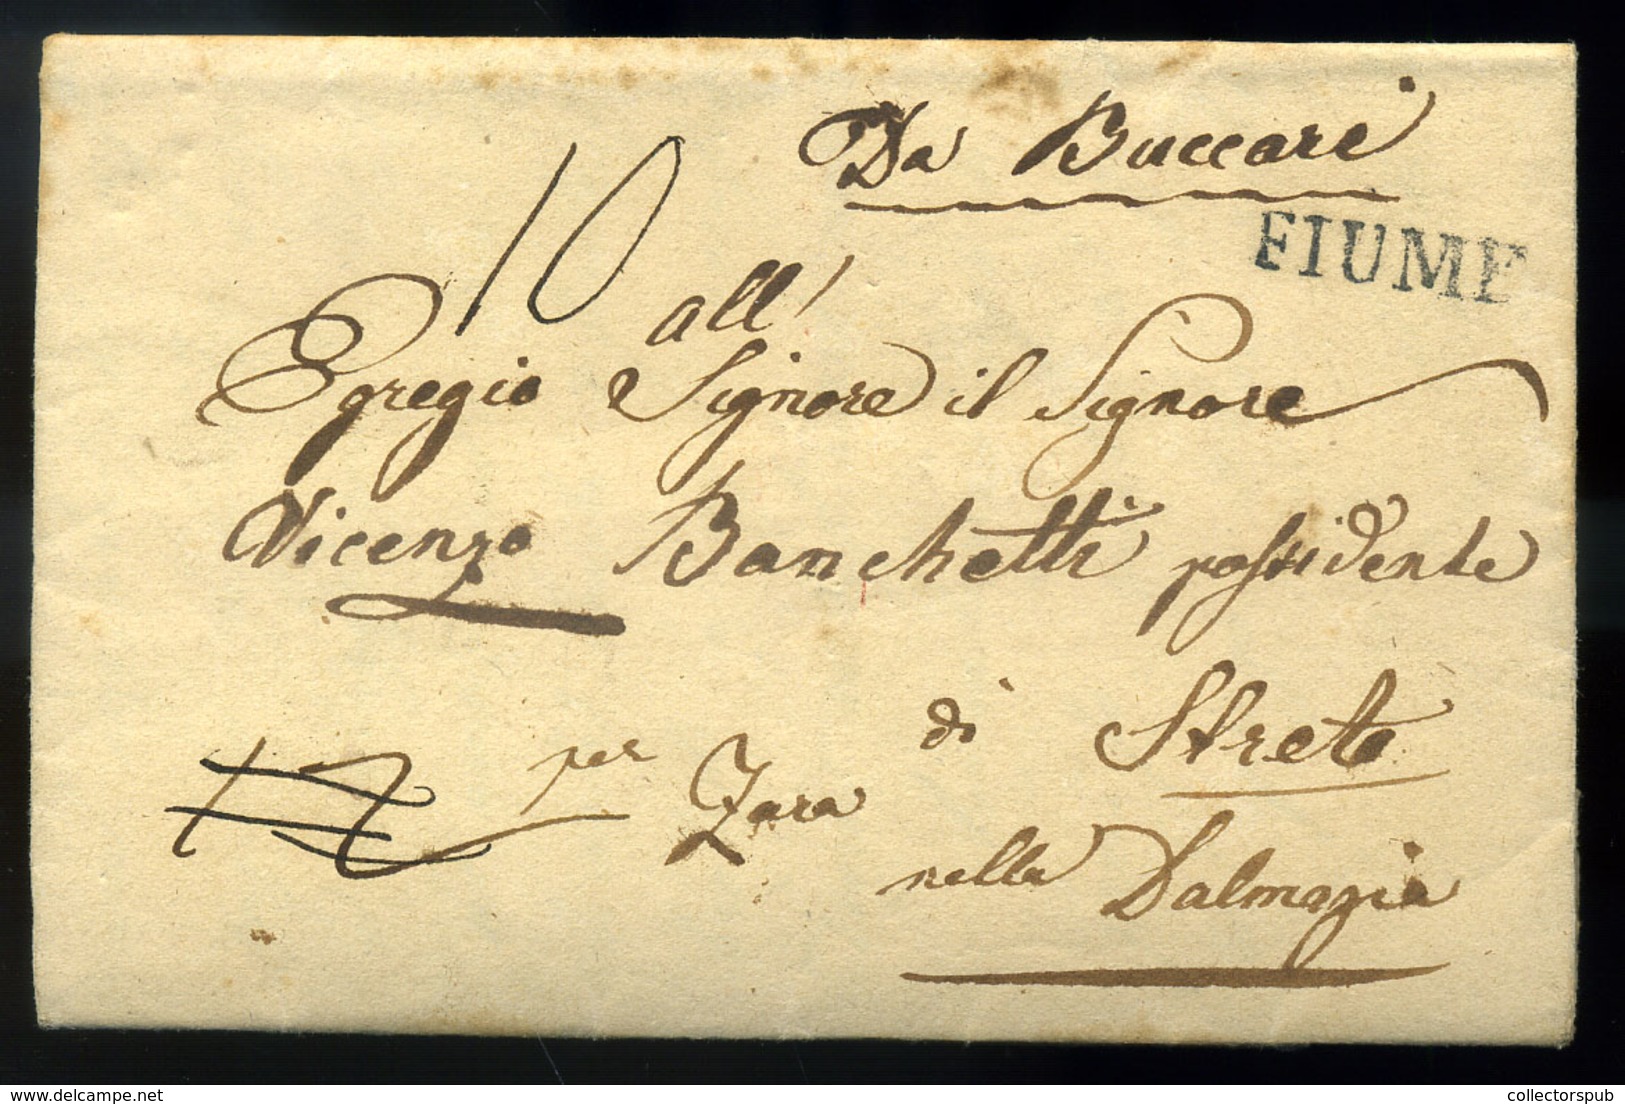 Da Buccari
FIUME
10
all'
Egregio Signore il Signore
Vicenzo Banchetti possidente
di Streto
per Zara
nella Dalmazia
collectorspub.com